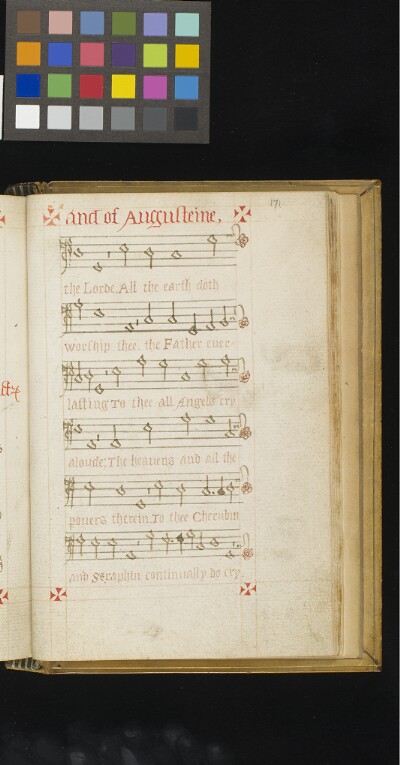 171
and of Augusteine,
the Lorde, All the earth doth
worship thee, the Father ever
lasting To thee all Angels cry
aloude: The heavens and all the
powers therein. To thee Cherubin
and Seraphin continually do cry.